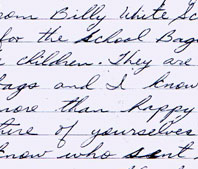 rom Billy White Sc
for the school Bag
children. They are
bags and I know
more than happy
ture of yourselves
know who sent